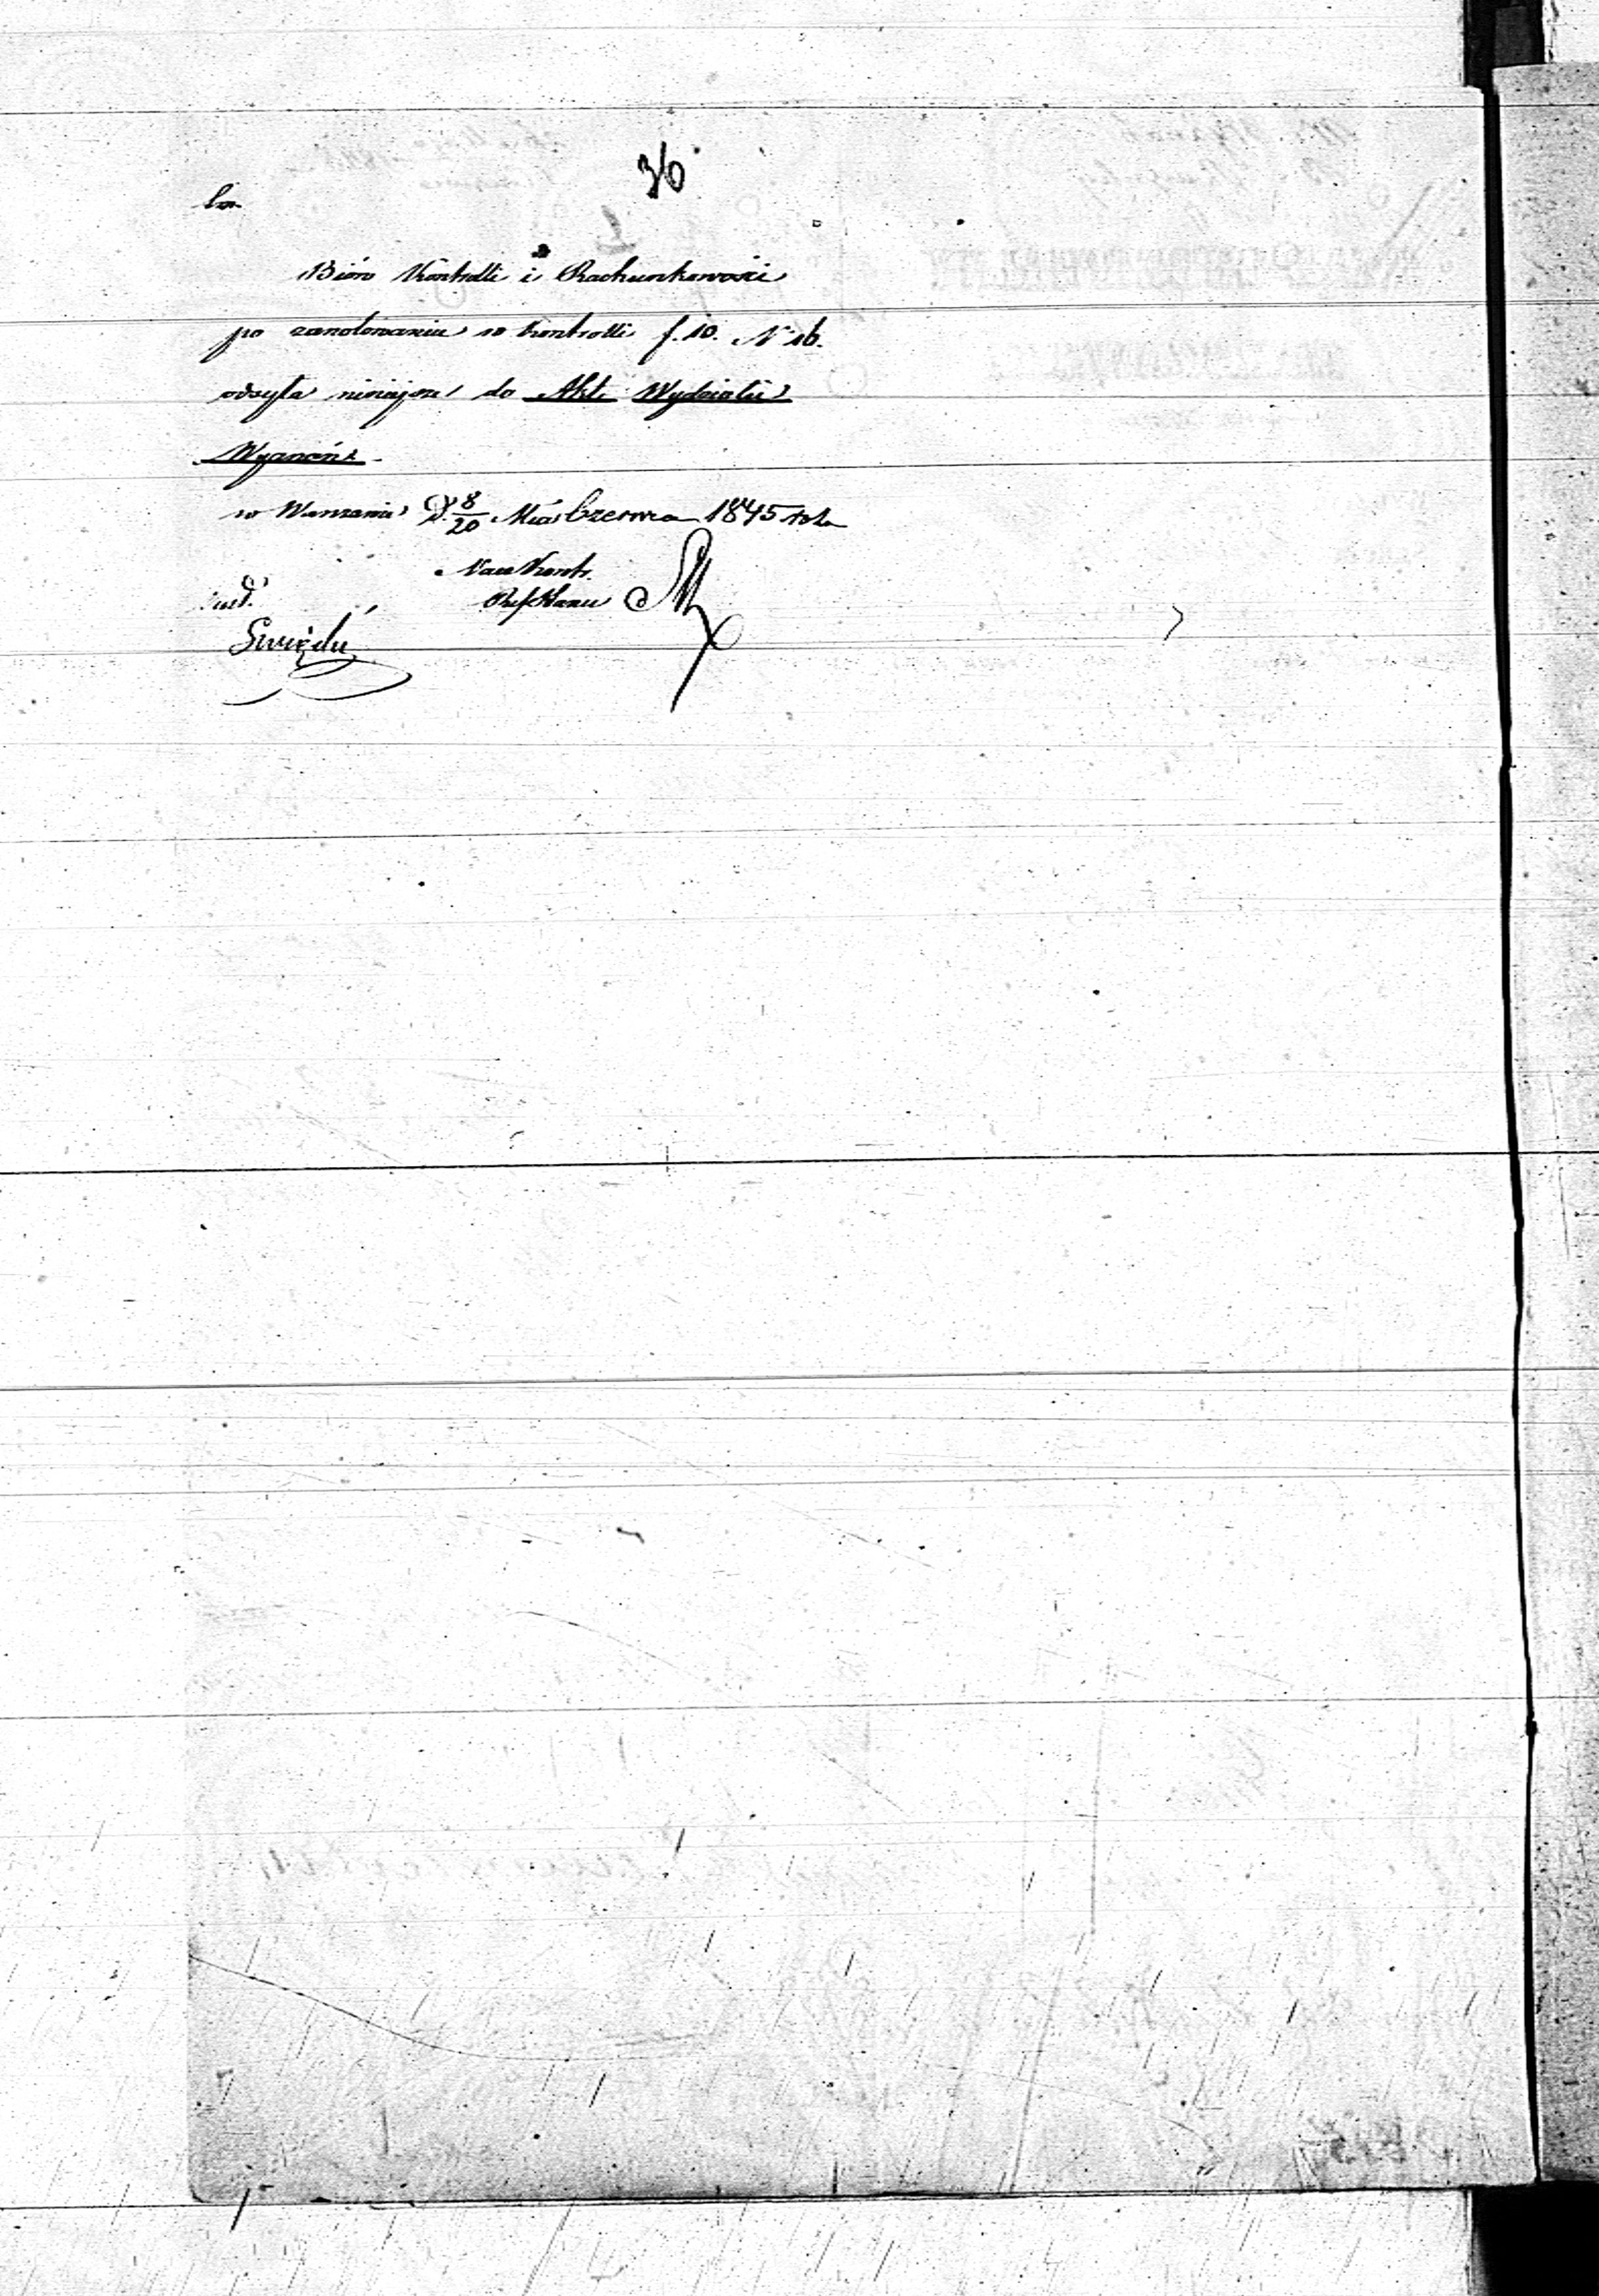 36
Bióro Kontrolli i Rachunkowości
po zanotowaniu w kontrolli f. 10. N 16.
odsyła niniejsze do Akt Wydziału
Wyznań
w Warszawie D. 8/20 Mca Czerwca 1845 roku
Nacz Kontr.